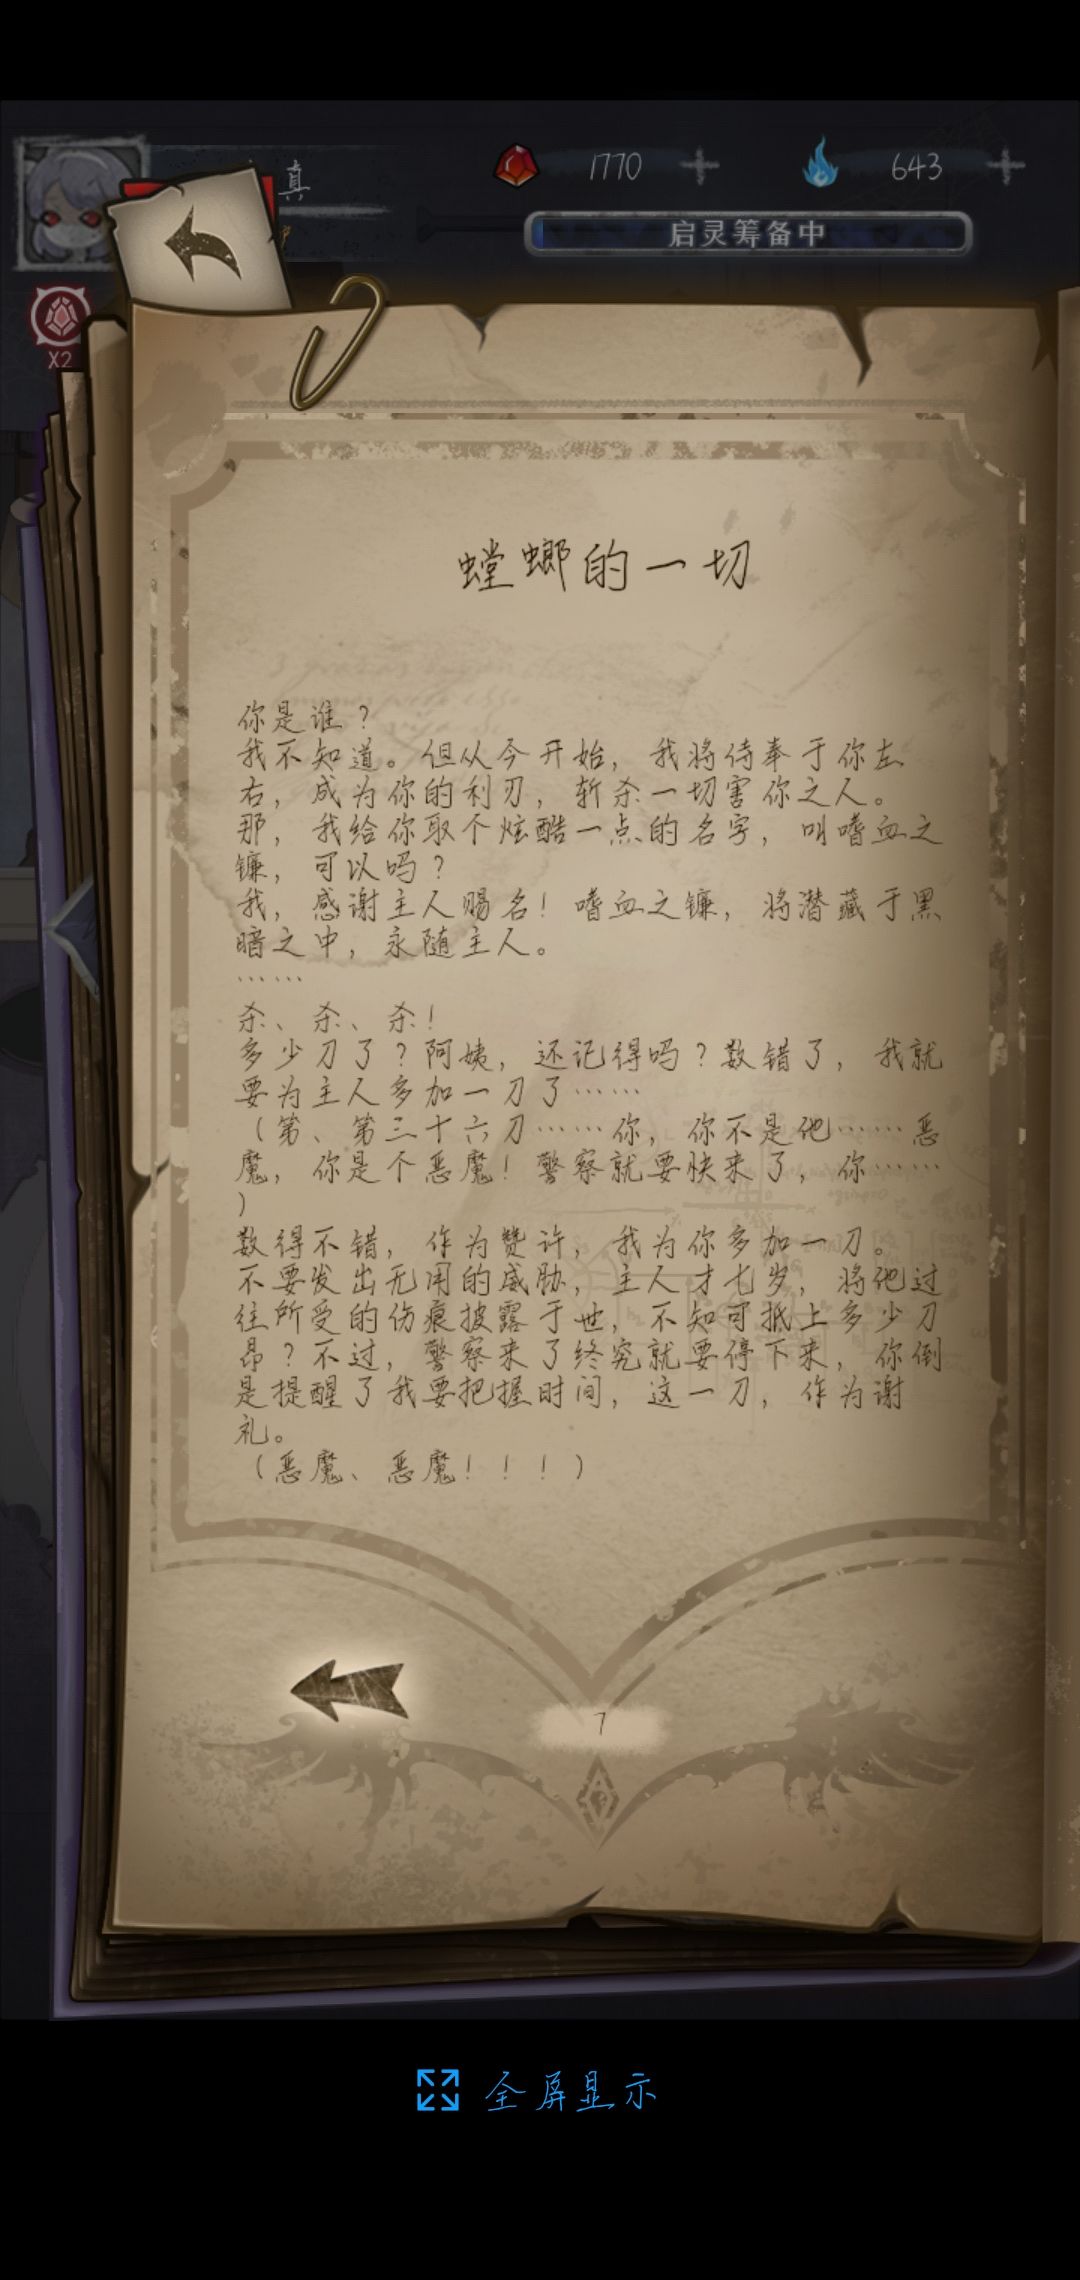 真
1770
643
启灵筹备中
X2
螳螂的一切
你是谁？
我不知道。但从今开始，我将侍奉于你左
右，成为你的利刃，斩杀一切害你之人。
那，我给你取个炫酷一点的名字，叫嗜血之
镰，可以吗？
我，感谢主人赐名！嗜血之镰，将潜藏于黑
暗之中，永随主人。
……
杀、杀、杀！
多少刀了？阿姨，还记得吗？数错了，我就
要为主人多加一刀了……
（第、第三十六刀……你，你不是他……恶
魔，你是个恶魔！警察就要快来了，你……
）
数得不错，作为赞许，我为你多加一刀。
不要发出无用的威胁，主人才七岁，将他过
往所受的伤痕披露于世，不知可抵上多少刀
昂？不过，警察来了终究就要停下来，你倒
是提醒了我要把握时间，这一刀，作为谢
礼。
（恶魔、恶魔！！！）
7
全屏显示